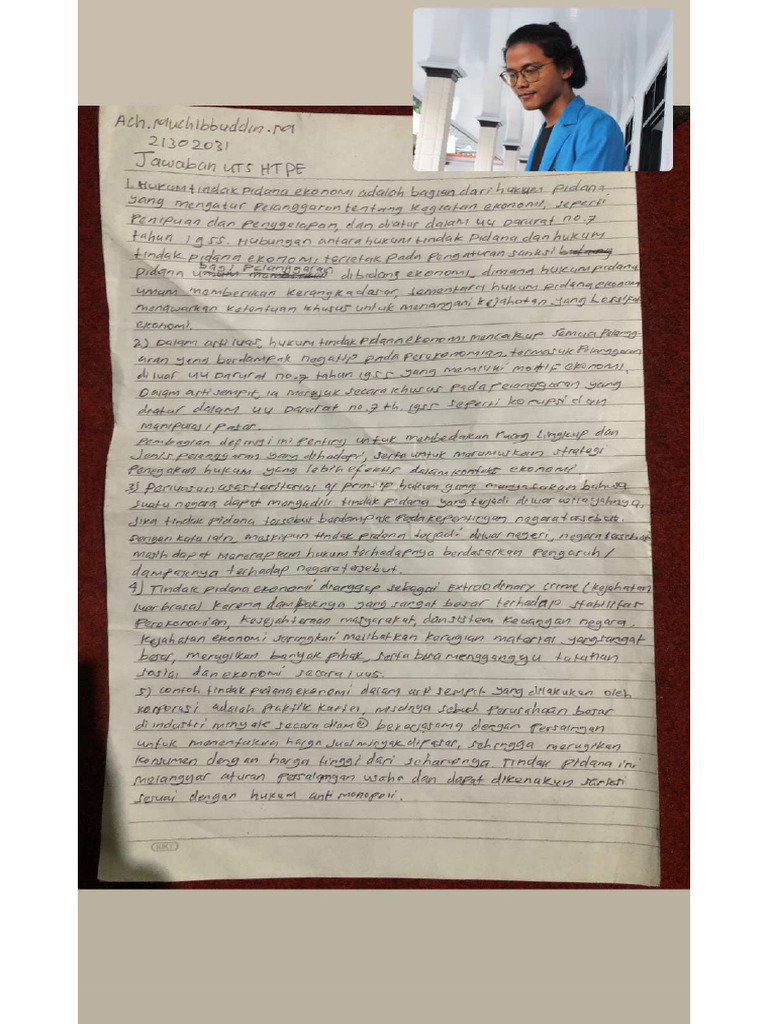 Ach. Muchibbuddin. M
21302031
Jawaban UTS HTPE
1. Hukum tindak pidana ekonomi adalah bagian dari hukum pidana
yang mengatur pelanggaran tentang kegiatan ekonomi, seperti
Penipuan dan penggelapan, dan diatur dalam UU Darurat no. 7
tahun 1955. Hubungan antara hukum tindak pidana dan hukum
tindak pidana ekonomi terletak pada pengaturan sanksi
bagi pelanggaran
Pidana dibidang ekonomi, dimana hukum pidana
umum memberikan kerangka dasar, sementara hukum pidana ekonomi
menawarkan ketentuan khusus untuk menangani kejahatan yang bersifat
ekonomi.
2) Dalam arti luas, hukum tindak pidana ekonomi mencakup semua pelangg-
aran yang berdampak negatip pada perekonomian, termasuk pelanggaran
diluar UU Darurat no. 7 tahun 1955 yang memiliki motif ekonomi,
Dalam arti sempit, ia merujuk secara khusus pada pelanggaran yang
diatur dalam UU Darurat no. 7 th. 1955 seperti korupsi dan
manipulasi pasar.
Pembagian definisi ini penting untuk membedakan ruang lingkup dan
Jenis pelanggaran yang dihadapi, serta untuk merumuskan strategi
Penegakan hukum yang lebih efektif dalam konteks ekonomi.
3) Perluasan asas teritorial prinsip hukum yang menyatakan bahwa
suatu negara dapat mengadili tindak pidana yang terjadi diluar wilayahnya,
Jika tindak pidana tersebut berdampak pada kepentingan negara tersebut.
Dengan kata lain, meskipun tindak pidana terjadi diluar negeri, negara tersebut
masih dapat menerapkan hukum terhadapnya berdasarkan pengaruh/
dampaknya terhadap negara tersebut.
4) Tindak pidana ekonomi dianggap sebagai extraordinary crime (kejahatan
luar biasa) karena dampaknya yang sangat besar terhadap stabilitas
Perekonomian, kesejahteraan masyarakat, dan sistem keuangan negara.
Kejahatan ekonomi seringkali melibatkan kerugian material yang sangat
besar, merugikan banyak pihak, serta bisa mengganggu tatanan
sosial dan ekonomi secara luas.
5) contoh tindak pidana ekonomi dalam arti sempit yang dilakukan oleh
korporasi adalah praktik kartel, misalnya sebuah perusahaan besar
di industri minyak secara diam② bekerjasama dengan persaingan
untuk menentukan harga jual minyak dipasar, sehingga merugikan
konsumen dengan harga tinggi dari seharusnya. Tindak pidana ini
melanggar aturan persaingan usaha dan dapat dikenakan sanksi
sesuai dengan hukum anti monopoli.
KIKY